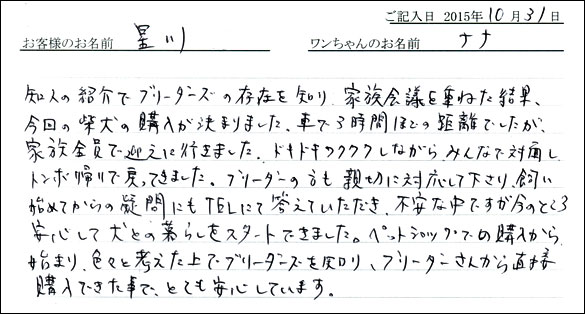 ご記入日 2015年10月31日
お客様のお名前 星川 ワンちゃんのお名前 ナナ
知人の紹介でブリーダーズの存在を知り、家族会議を重ねた結果、
今回の柴犬の購入が決まりました。車で3時間ほどの距離でしたが、
家族全員で迎えに行きました。ドキドキワクワクしながらみんなで対面し
トンボ帰りで戻ってきました。ブリーダーの方も親切に対応して下さり、飼い
始めてからの疑問にもTELにて答えていただき、不安な中ですが今のところ
安心して犬との暮らしをスタートできました。ペットショップでの購入から
始まり、色々と考えた上でブリーダーズを知り、ブリーダーさんから直接
購入できた事で、とても安心しています。